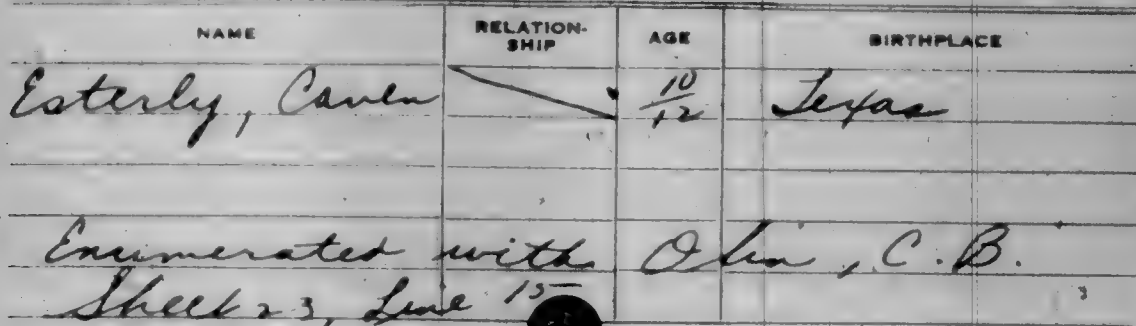 NAME RELATION-SHIP AGE BIRTHPLACE
Esterly, Caven 10/12 Texas
Enumerated with Olin, C. B.
Sheet 23, Line 15